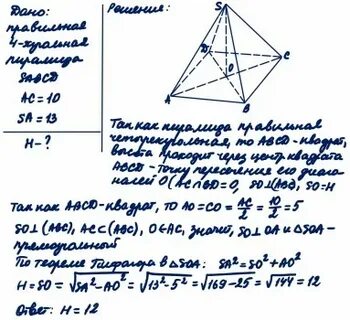 Дано:
правильная
4-хугольная
пирамида
SABCD
AC = 10
SA = 13
H - ?
Решение:
S
D
C
O
A
B
Так как пирамида правильная
четырехугольная, то ABCD - квадрат,
высота проходит через центр квадрата
ABCD - точку пересечения его диаго-
налей O (AC∩BD=O, SO⊥(ABC), SO=H
Так как ABCD - квадрат, то AO = CO = AC/2 = 10/2 = 5
SO⊥(ABC), AC⊂(ABC), O∈AC, значит, SO⊥OA и ΔSOA -
прямоугольный
По теореме Пифагора в ΔSOA: SA² = SO² + AO²
H = SO = √SA² - AO² = √13² - 5² = √169 - 25 = √144 = 12
Ответ: H = 12